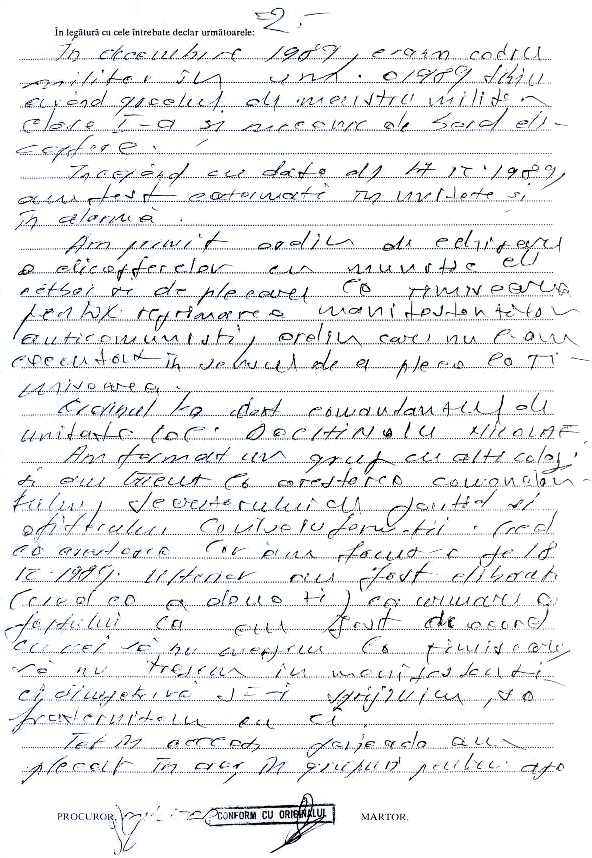 -2.-
În legătură cu cele întrebate declar următoarele:
În decembrie 1989, eram cadru
militar în U.M. 01989
având gradul de maistru militar
clasa I-a și mecanic de bord eli-
coptere.
Începând cu data de 17 12.1989,
am fost în unitate și
în alarmă.
Am primit ordin de echipare
a elicopterelor cu muniție de
război și de plecare la Timișoara
pentru reprimarea manifestanților
anticomuniști, ordin care nu l-am
executat în sensul de a pleca la Ti-
mișoara.
Ordinul l-a dat comandantul de
unitate NICOLAE
Am format un grup cu alți colegi
și am trecut la arestarea comandan-
tului, secretarului de partid și
ofițerului Contrainformații. Cred
că arestarea lor am făcut-o pe 18
12.1989. Ulterior au fost eliberați
(cred că a doua zi) ca urmare a
faptului că au fost de acord
cu noi să nu mergem la Timișoara,
să nu tragem în manifestanți
ci dimpotrivă să-i sprijinim, să
fraternizăm cu ei.
Tot în această perioadă am
plecat în oraș în grupuri pentru a
PROCUROR,
CONFORM CU ORIGINALUL
MARTOR.